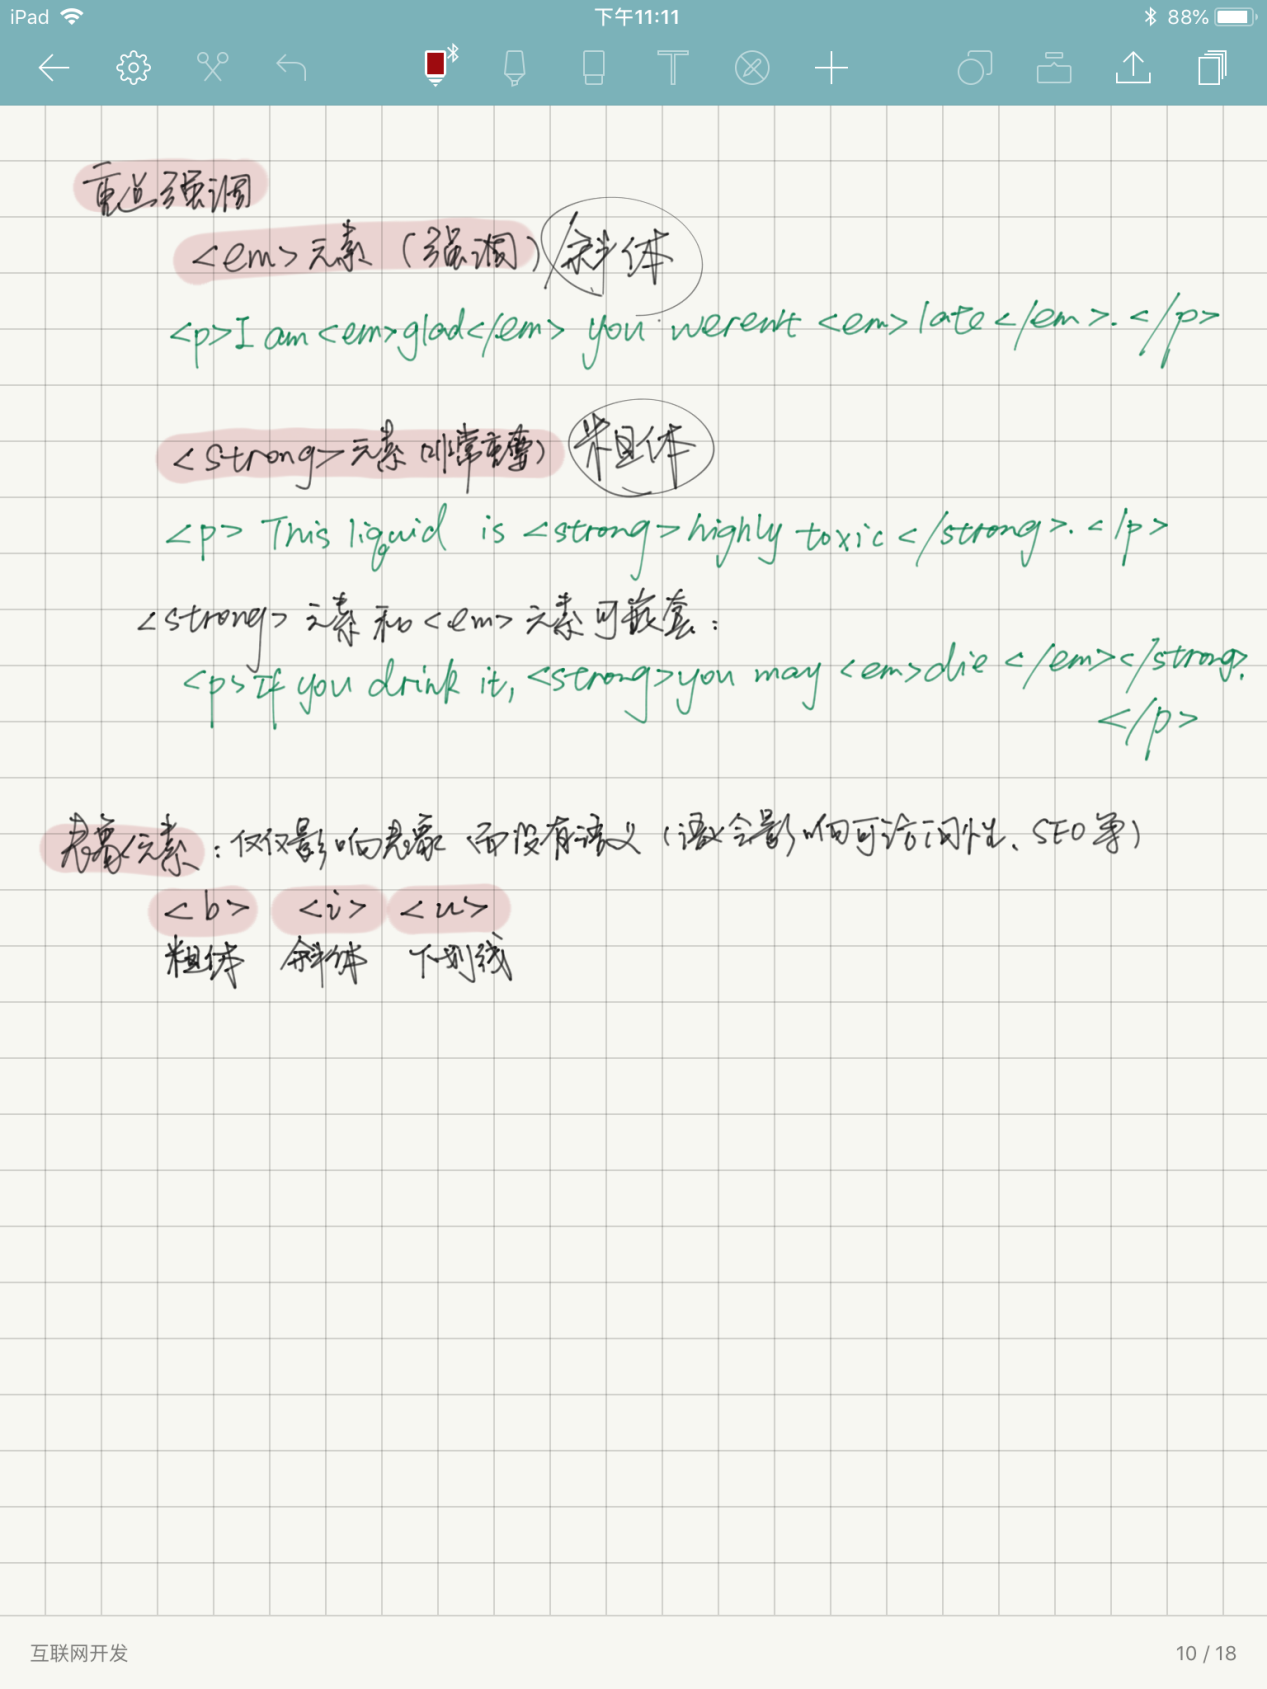 iPad
下午11:11
88%
重点强调
<em>元素（强调）/斜体
<p>I am <em>glad</em> you weren't <em>late</em>.</p>
<strong>元素（非常重要）粗体
<p> This liquid is <strong>highly toxic</strong>.</p>
<strong>元素和<em>元素可嵌套：
<p>If you drink it, <strong>you may <em>die</em></strong>.
</p>
表象元素：仅仅影响表象而没有语义（语义会影响可访问性、SEO等）
<b> <i> <u>
粗体 斜体 下划线
互联网开发
10 / 18